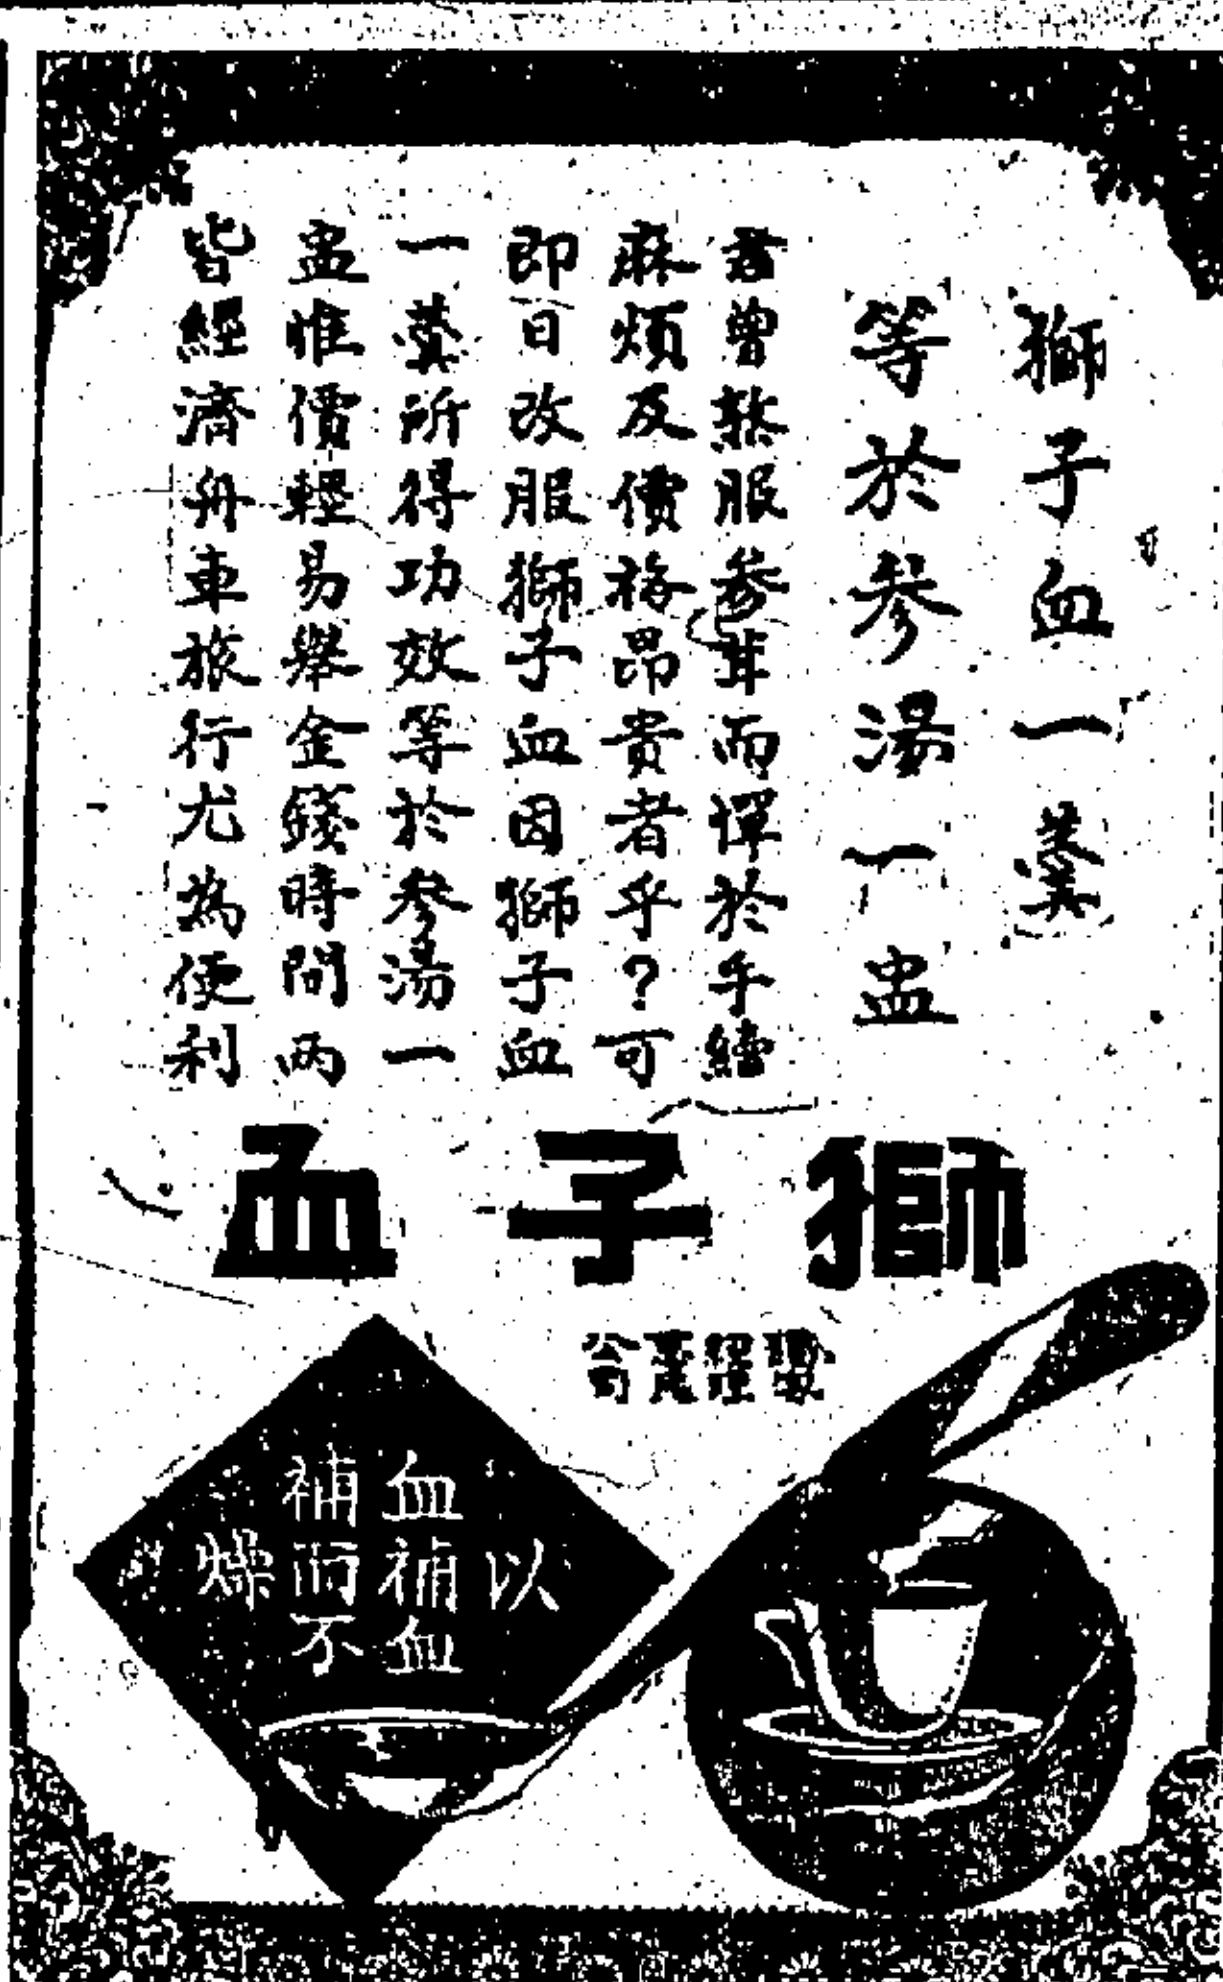 獅子血一羹
等於參湯一盅
君曾熬服參茸而憚於手續
麻煩及價格昂貴者乎？可
即日改服獅子血因獅子血
一羹所得功效等於參湯一
盅惟價輕易舉金錢時間兩
皆經濟舟車旅行尤為便利
獅子血
以
血補血
補而不
燥